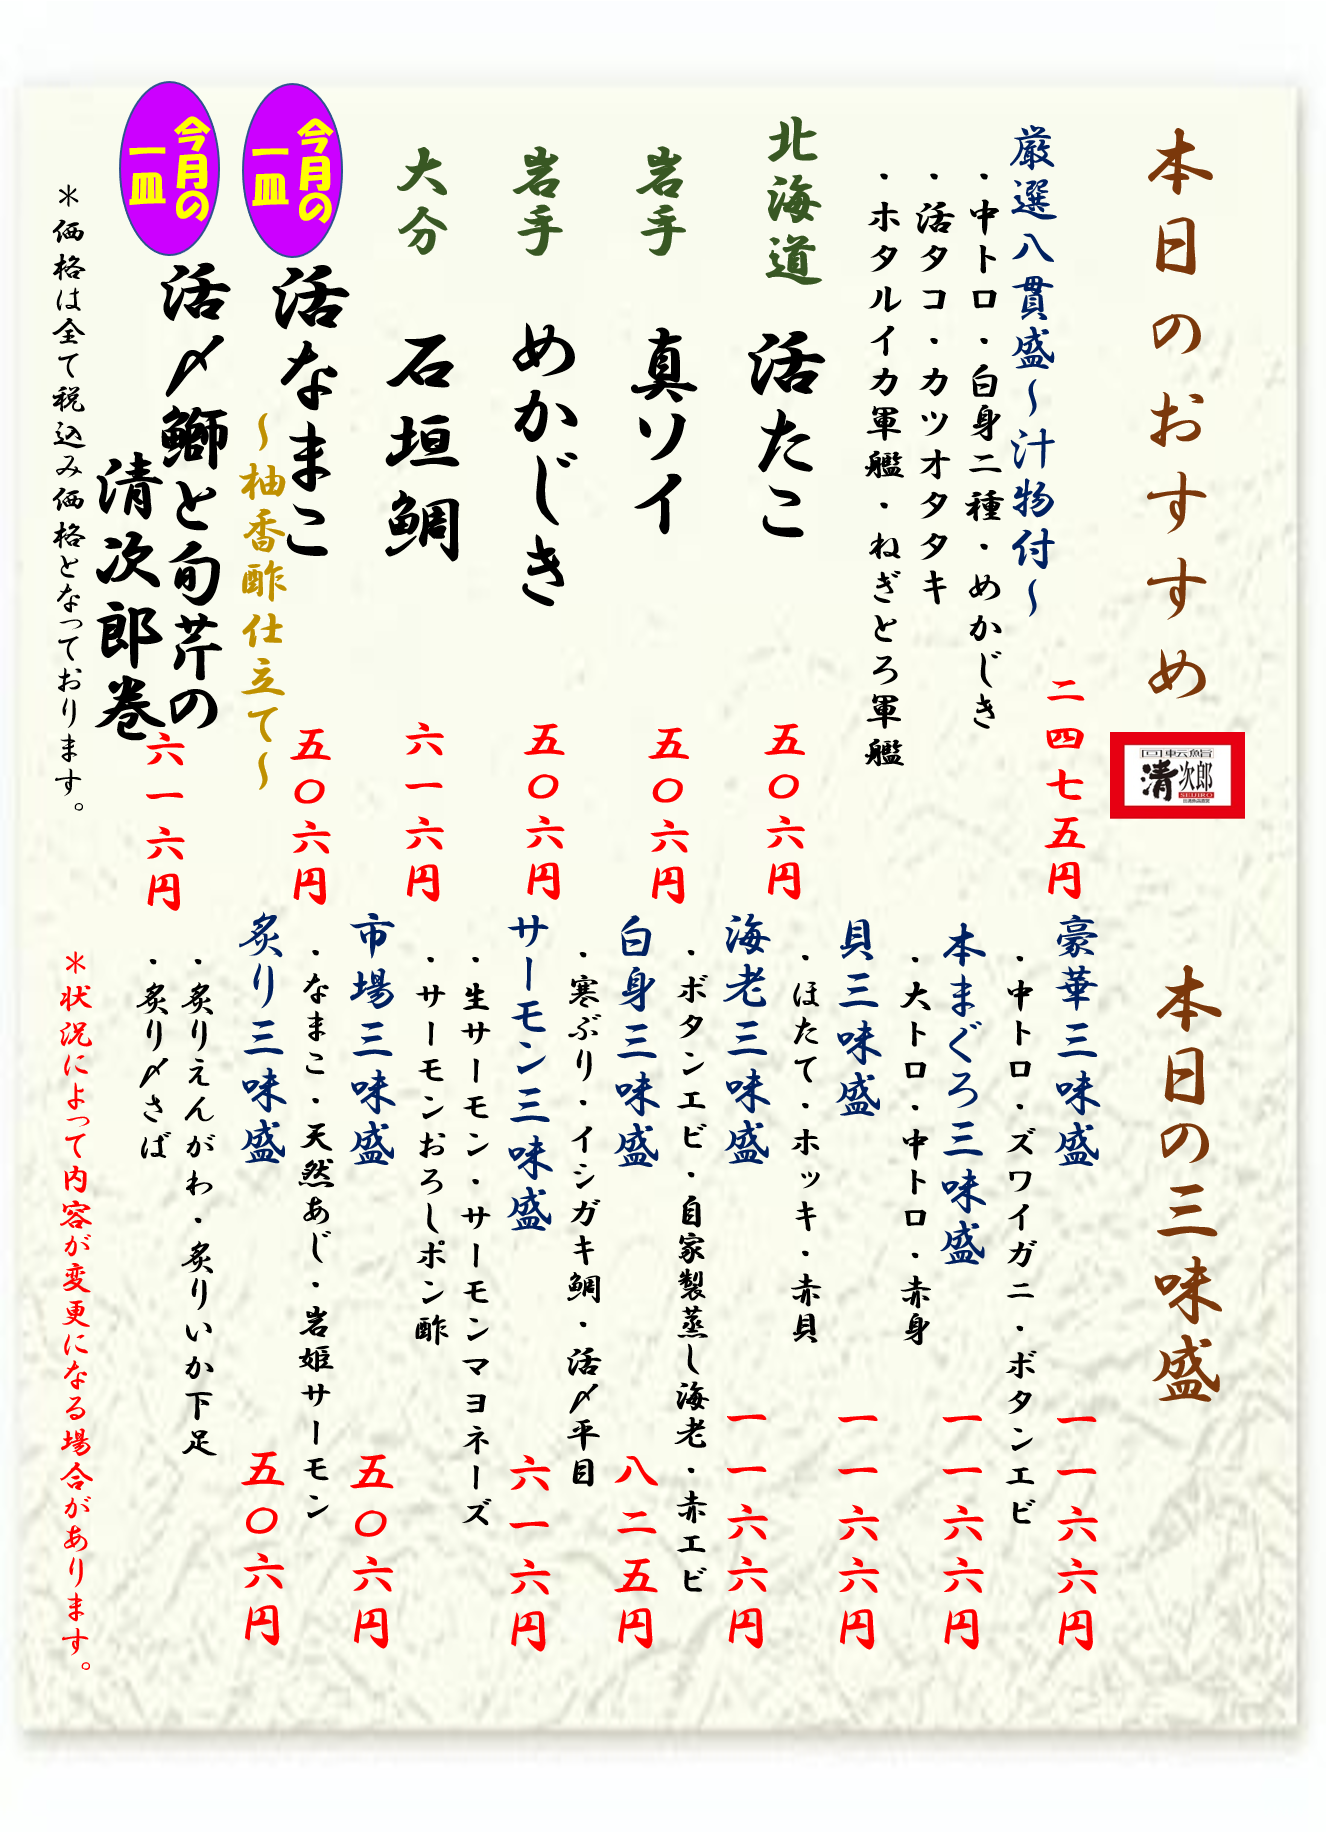 本日のおすすめ
回転鮨
清次郎
SEIJIRO
厳選八貫盛～汁物付～
二四七五円
・中トロ・白身二種・めかじき
・活タコ・カツオタタキ
・ホタルイカ軍艦・ねぎとろ軍艦
北海道 活たこ 五〇六円
岩手 真ソイ 五〇六円
岩手 めかじき 五〇六円
大分 石垣鯛 六一六円
今月の
一皿
活なまこ
～柚香酢仕立て～
五〇六円
今月の
一皿
活〆鰤と旬芹の
清次郎巻
六一六円
＊価格は全て税込み価格となっております。
本日の三味盛
豪華三味盛 一一六六円
・中トロ・ズワイガニ・ボタンエビ
本まぐろ三味盛 一一六六円
・大トロ・中トロ・赤身
貝三味盛 一一六六円
・ほたて・ホッキ・赤貝
海老三味盛 一一六六円
・ボタンエビ・自家製蒸し海老・赤エビ
白身三味盛 八二五円
・寒ぶり・イシガキ鯛・活〆平目
サーモン三味盛 六一六円
・生サーモン・サーモンマヨネーズ
・サーモンおろしポン酢
市場三味盛 五〇六円
・なまこ・天然あじ・岩姫サーモン
炙り三味盛 五〇六円
・炙りえんがわ・炙りいか下足
・炙り〆さば
＊状況によって内容が変更になる場合があります。